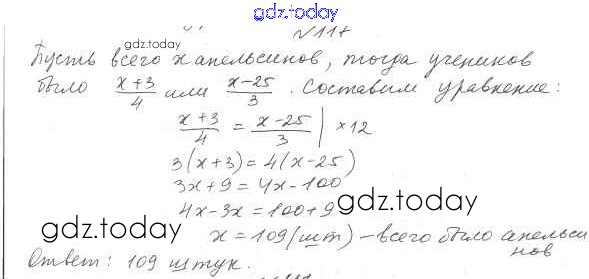 gdz.today
№117
Пусть всего x апельсинов, тогда учеников
было (x+3)/4 или (x-25)/3. Составим уравнение:
(x+3)/4 = (x-25)/3 | ×12
3(x+3)=4(x-25)
3x+9=4x-100
4x-3x=100+9
x=109(шт)-всего было апельси
нов
Ответ: 109 штук.
gdz.today
gdz.today
gdz.today
gdz.today